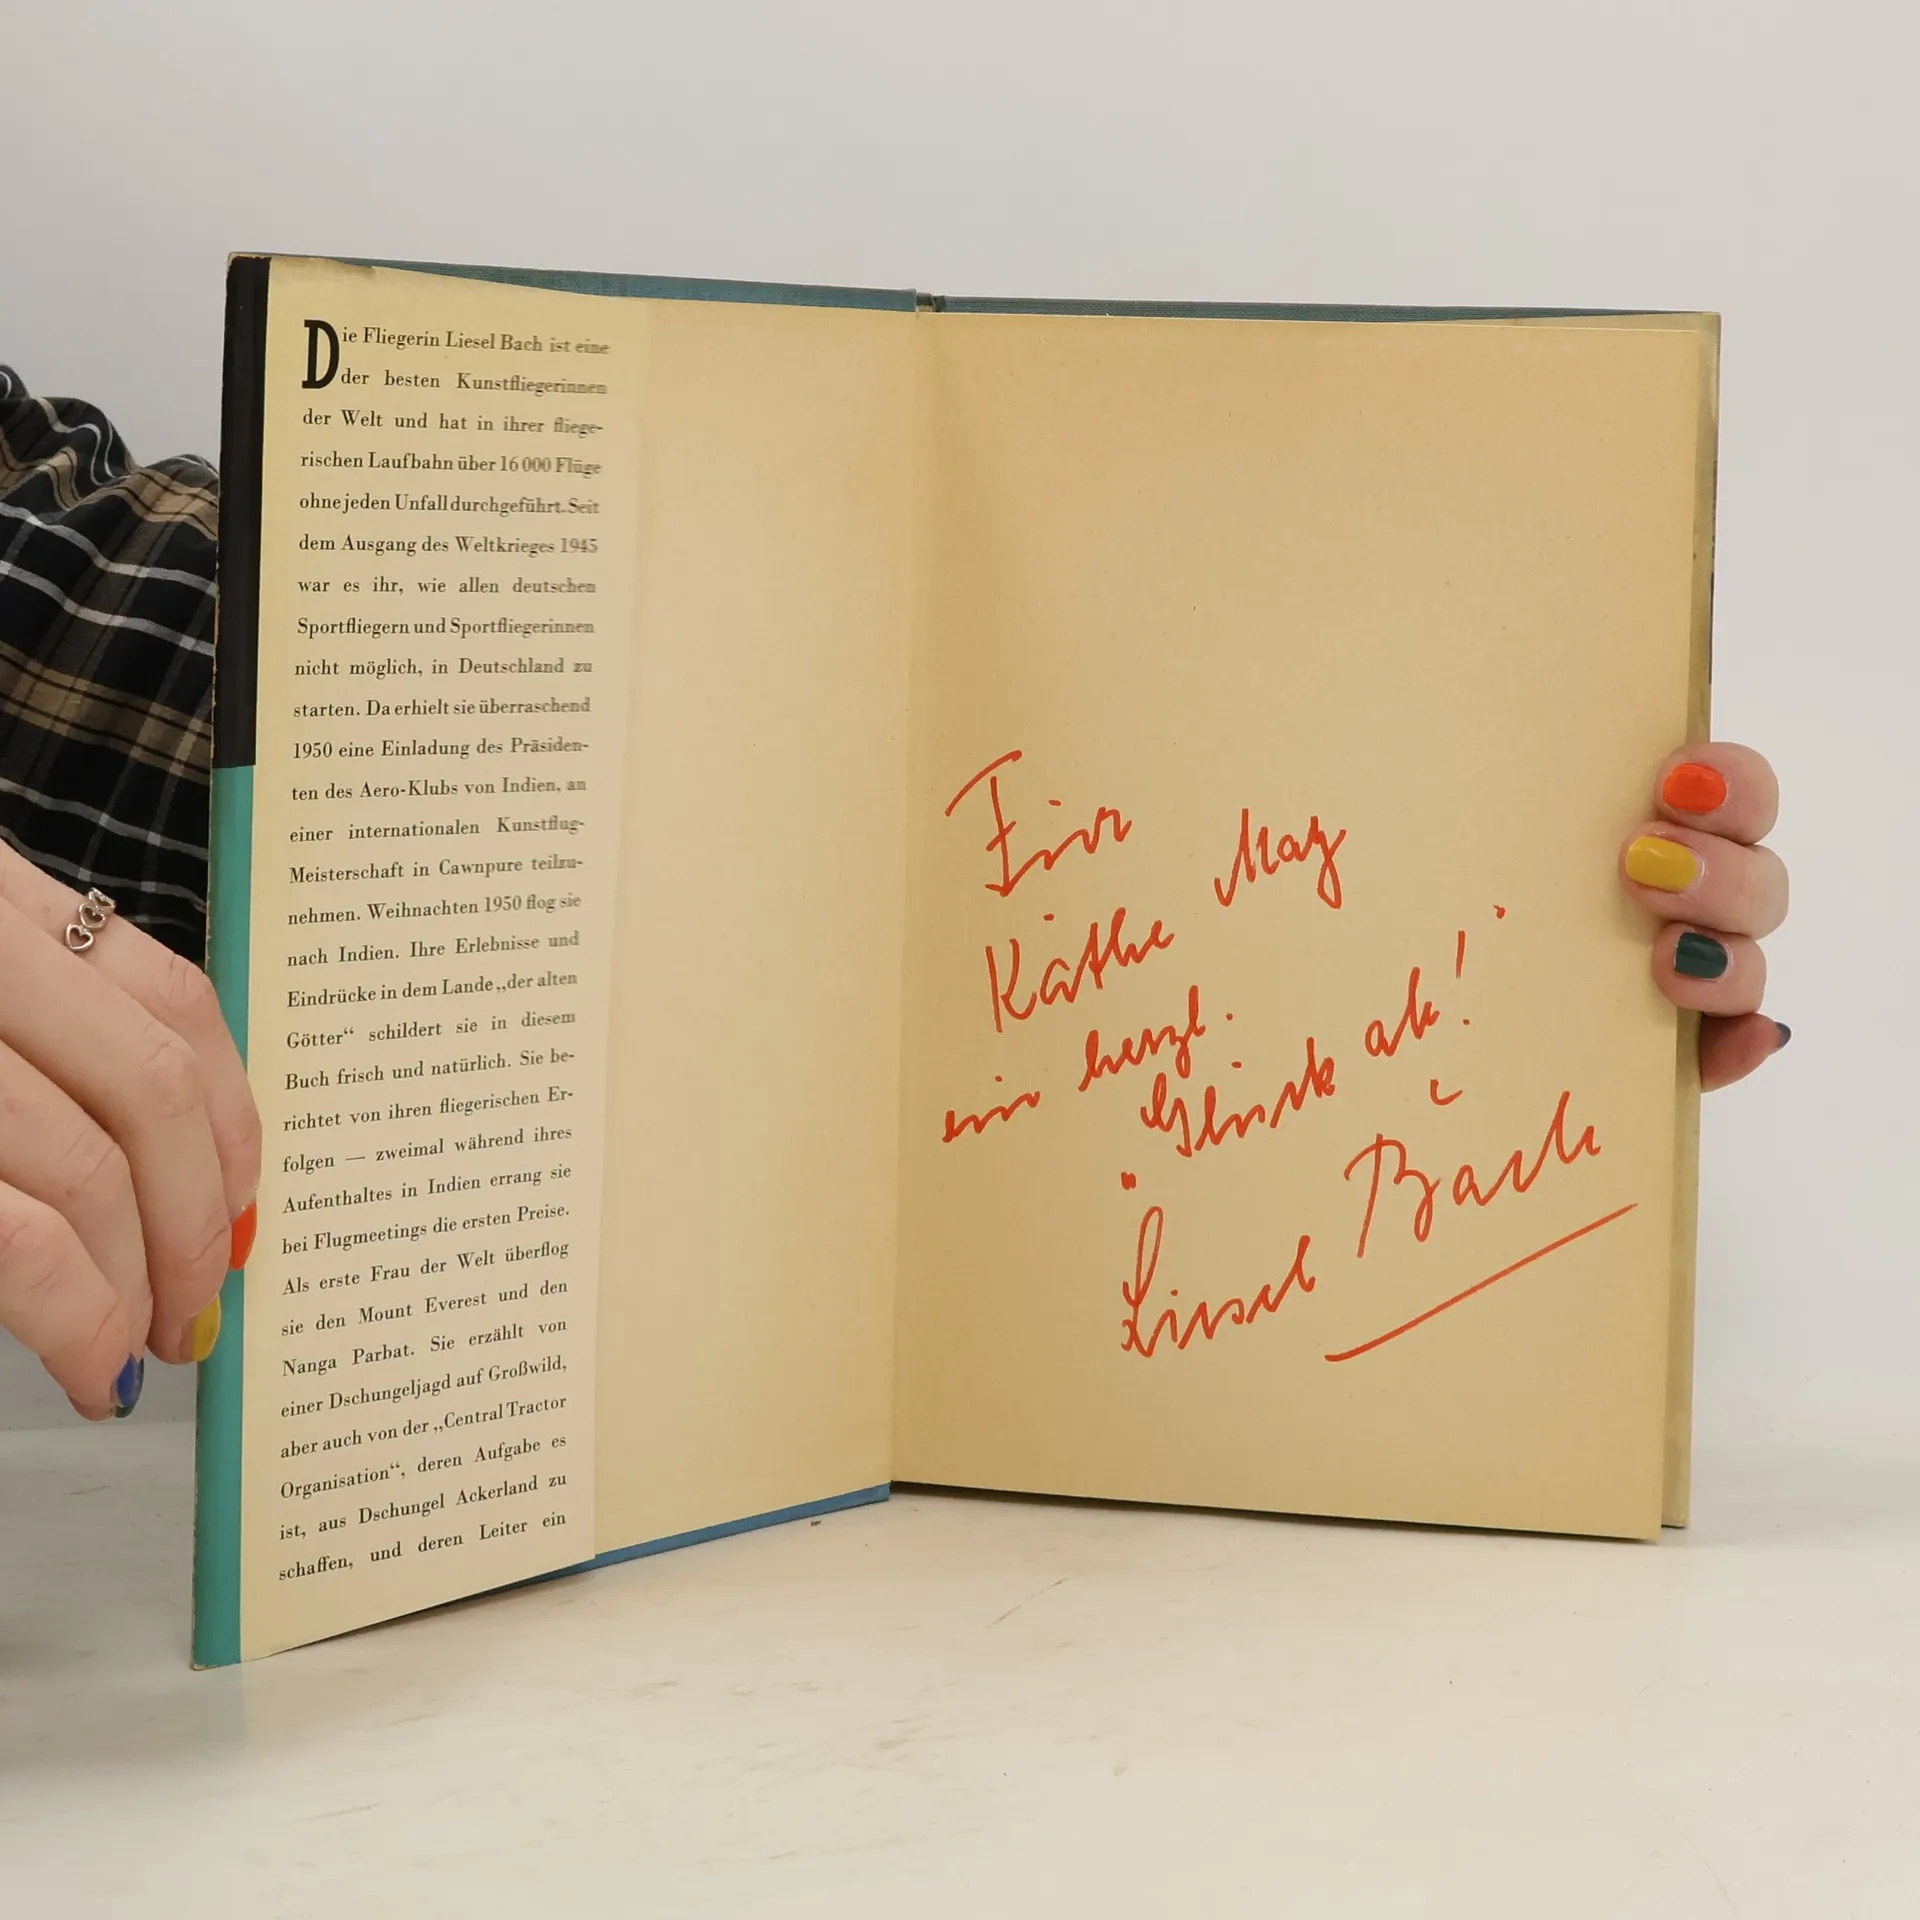 Die Fliegerin Liesel Bach ist eine
der besten Kunstfliegerinnen
der Welt und hat in ihrer fliege-
rischen Laufbahn über 16 000 Flüge
ohne jeden Unfall durchgeführt. Seit
dem Ausgang des Weltkrieges 1945
war es ihr, wie allen deutschen
Sportfliegern und Sportfliegerinnen
nicht möglich, in Deutschland zu
starten. Da erhielt sie überraschend
1950 eine Einladung des Präsiden-
ten des Aero-Klubs von Indien, an
einer internationalen Kunstflug-
Meisterschaft in Cawnpure teilzu-
nehmen. Weihnachten 1950 flog sie
nach Indien. Ihre Erlebnisse und
Eindrücke in dem Lande „der alten
Götter“ schildert sie in diesem
Buch frisch und natürlich. Sie be-
richtet von ihren fliegerischen Er-
folgen — zweimal während ihres
Aufenthaltes in Indien errang sie
bei Flugmeetings die ersten Preise.
Als erste Frau der Welt überflog
sie den Mount Everest und den
Nanga Parbat. Sie erzählt von
einer Dschungeljagd auf Großwild,
aber auch von der „Central Tractor
Organisation“, deren Aufgabe es
ist, aus Dschungel Ackerland zu
schaffen, und deren Leiter ein
Für
Käthe May
ein herzl.
„Glück ab!“
Liesel Bach